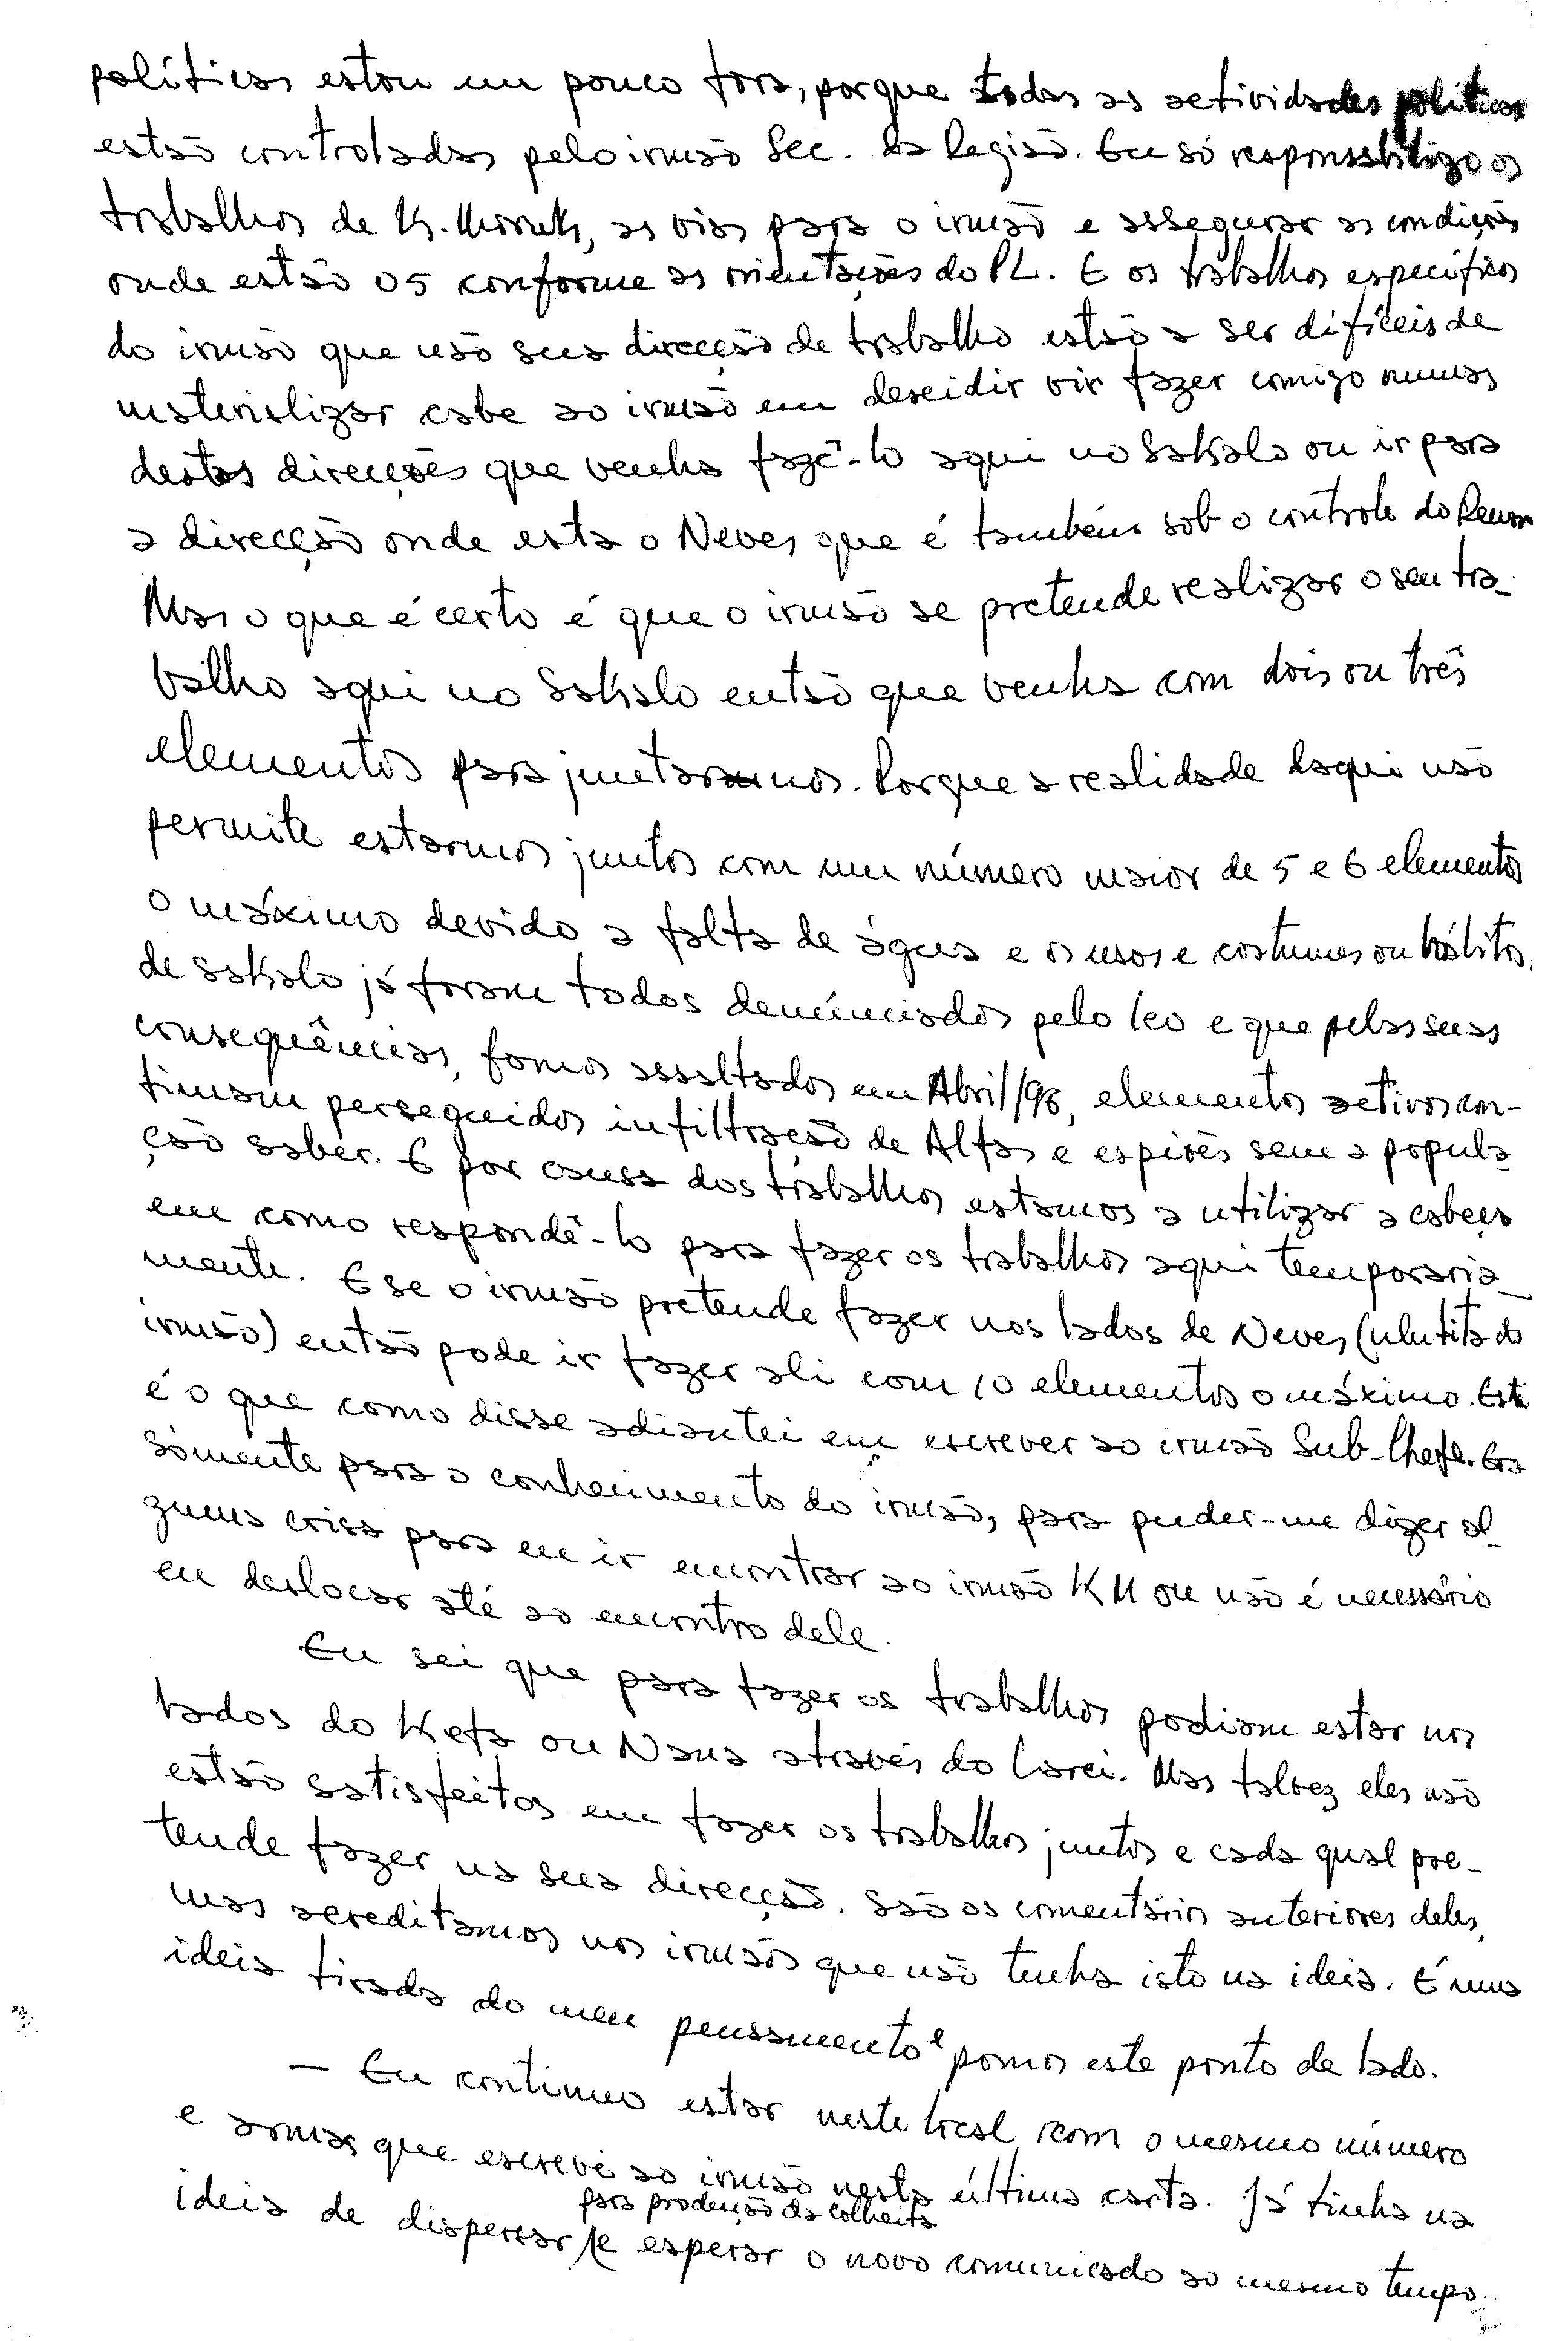 políticas estou um pouco fora, porque todas as actividades políticas
estão controladas pelo irmão Sec. da Região. Eu só responsabilizo os
trabalhos de K. , as vias para o irmão e assegurar as condições
onde estão os conforme as orientações do PL. E os trabalhos específicos
do irmão que não sua direcção de trabalho estão a ser difíceis de
materializar cabe ao irmão em descidir vir fazer comigo numas
destas direcções que venha fazê-lo aqui no Sakalo ou ir para
a direcção onde esta o Neves que é também sob o controle do Renan
Mas o que é certo é que o irmão se pretende realizar o seu tra-
balho aqui no Sakalo então que venha com dois ou três
elementos para juntarmos. Porque a realidade daqui não
permite estarmos juntos com um número maior de 5 e 6 elementos
o máximo devido a falta de água e os usos e costumes ou hábitos.
de Sakalo já foram todos denúnciados pelo leo e que pelas suas
consequências, fomos assaltados em Abril/98, elementos activos con-
tinuam perseguidos infiltração de Alfas e espiões sem a popula-
ção saber. E por causa dos trabalhos estamos a utilizar a cabeça
em como respondê-lo para fazer os trabalhos aqui temporaria-
mente. E se o irmão pretende fazer nos lados de Neves (ulutita do
irmão) então pode ir fazer ali com 10 elementos o máximo. Este
é o que como disse adiantei em escrever ao irmão Sub-Chefe. Era
sòmente para o conhecimento do irmão, para puder-me dizer al-
guma coisa para eu ir encontrar ao irmão KM ou não é necessário
eu deslocar até ao encontro dele.
Eu sei que para fazer os trabalhos podiam estar nos
lados do Kefa ou Nana através do Larei. Mas talvez eles não
estão satisfeitos em fazer os trabalhos juntos e cada qual pre-
tende fazer na sua direcção. São os comentários anteriores deles,
mas acreditamos nos irmãos que não tenha isto na ideia. É uma
ideia tirada do meu pensamento e pomos este ponto de lado.
— Eu continuo estar neste local com o mesmo número
e armas que escrevi ao irmão nesta última carta. Já tinha na
para produção da colheita
ideia de dispersar /e esperar o novo comunicado ao mesmo tempo.